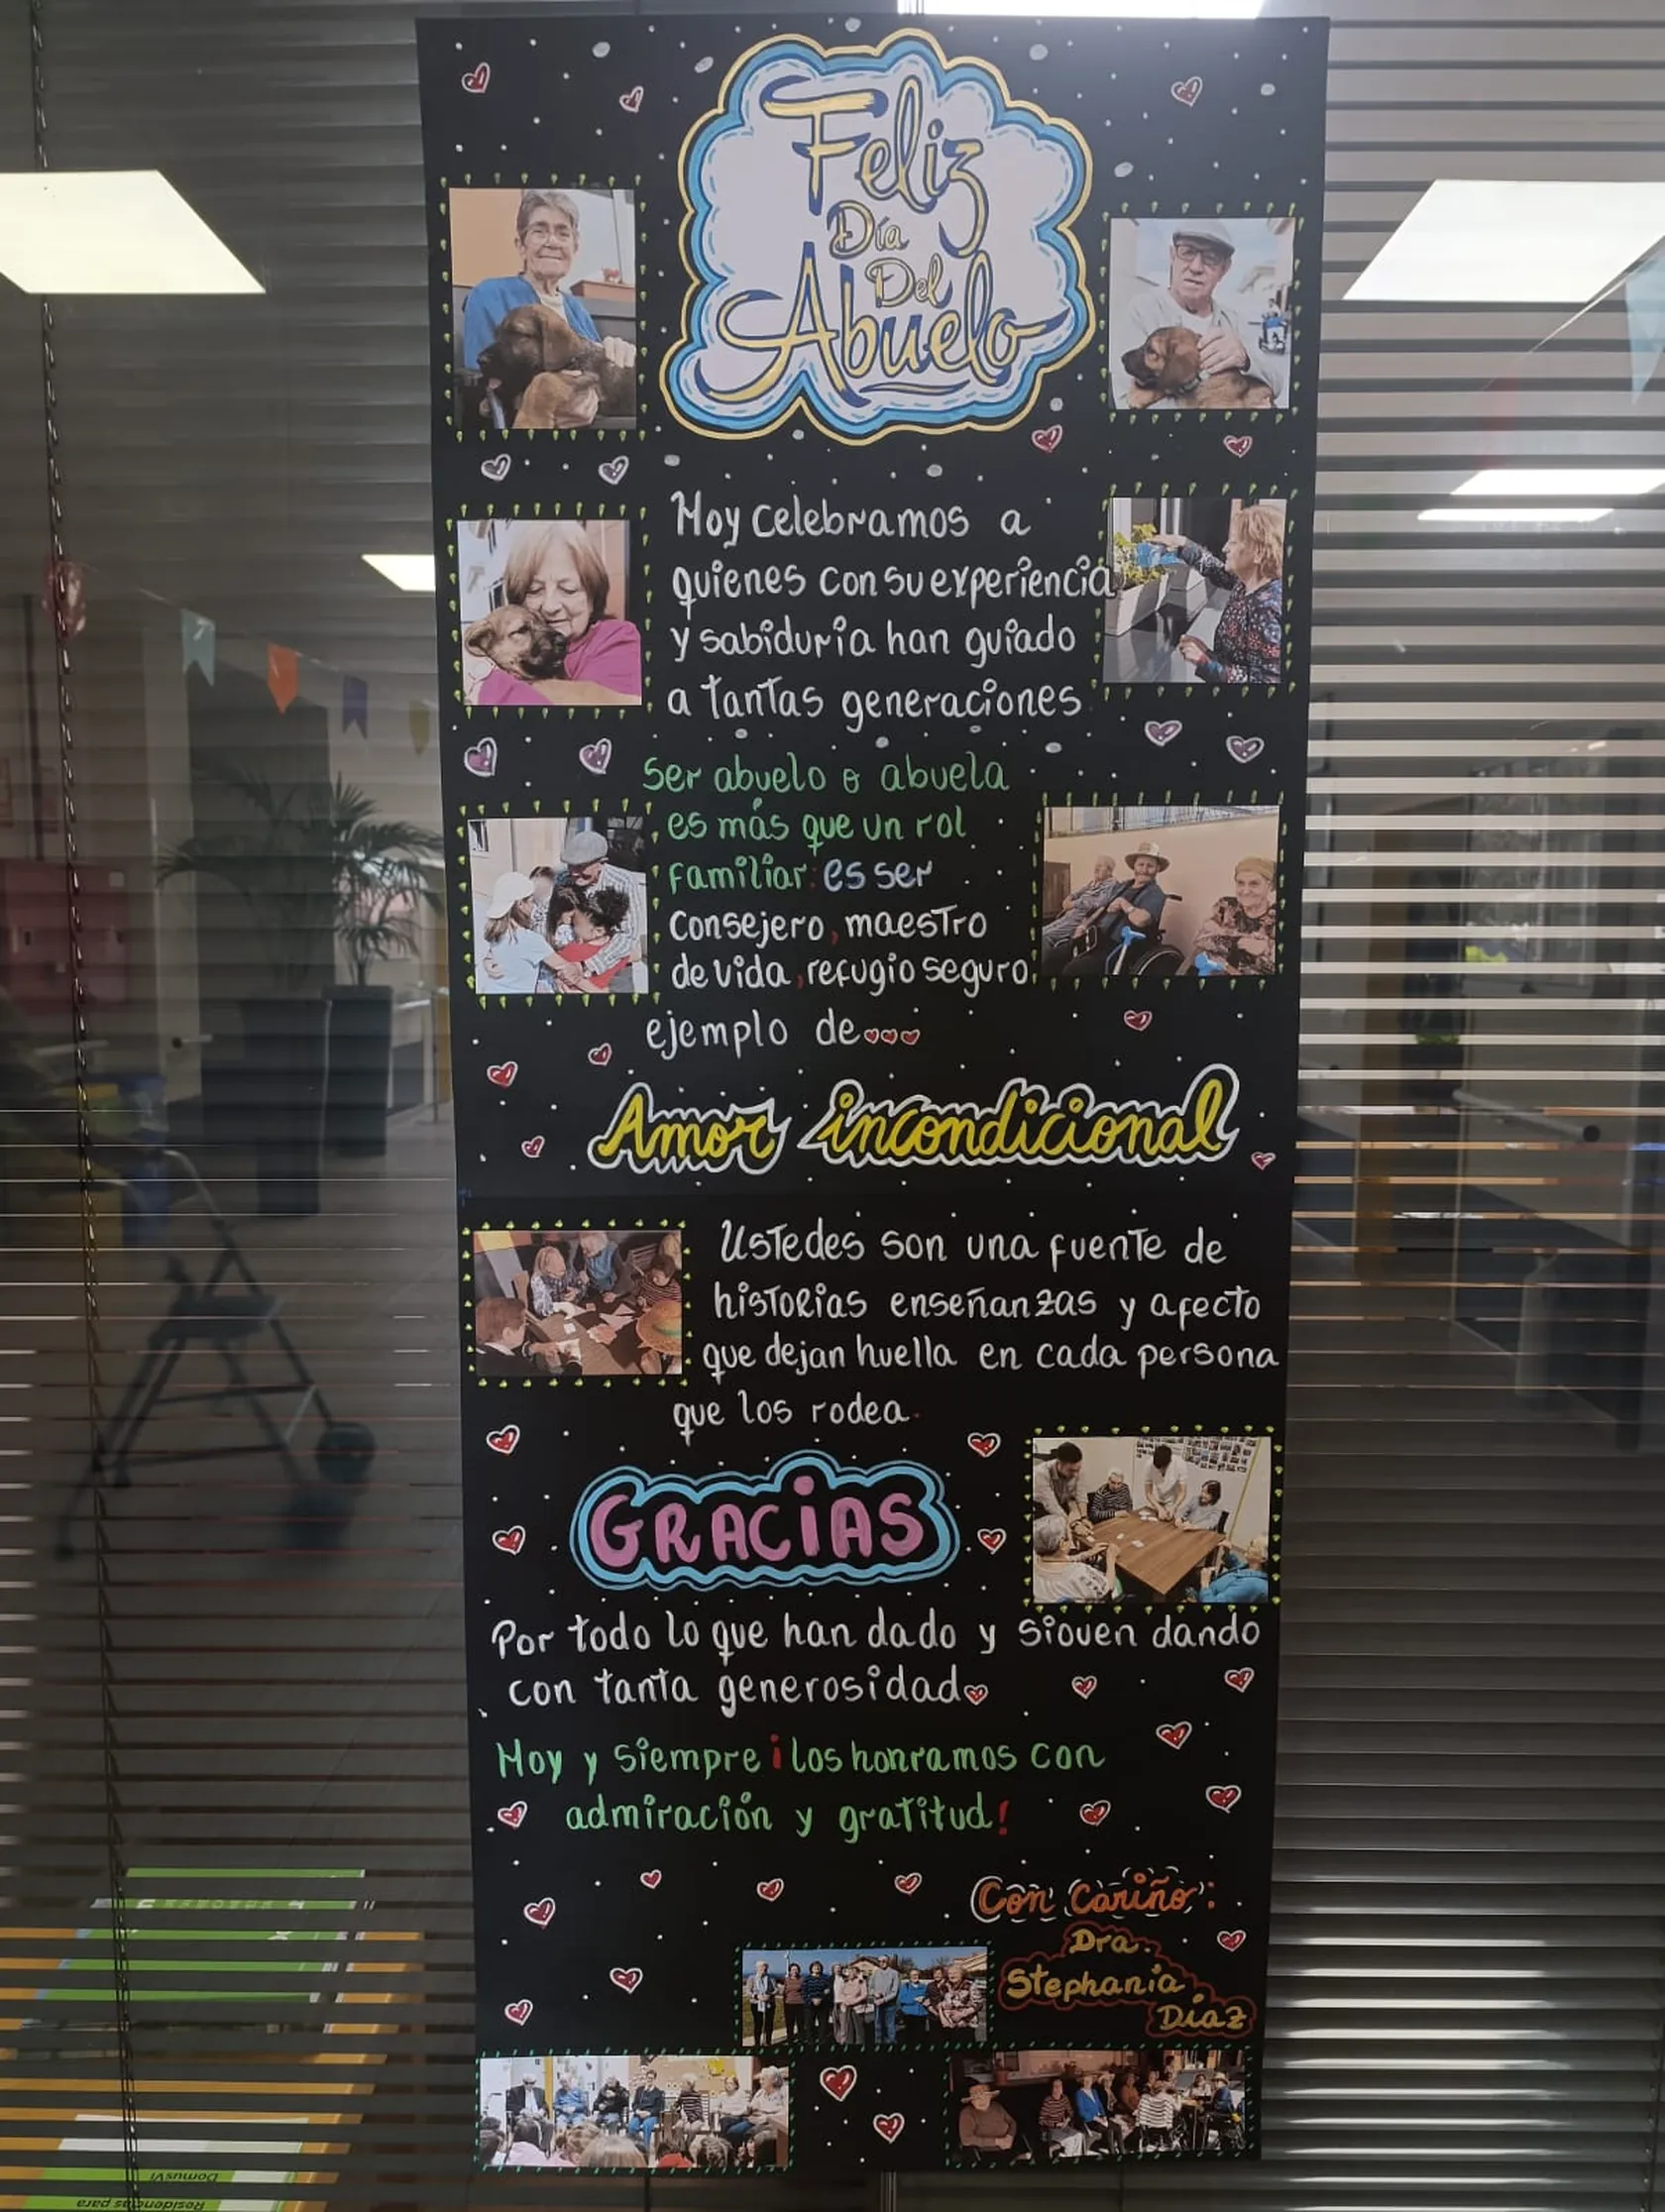 Feliz
Día
Del
Abuelo
Hoy celebramos a
quienes con su experiencia
y sabiduría han guiado
a tantas generaciones
Ser abuelo o abuela
es más que un rol
familiar. es ser
consejero, maestro
de vida, refugio seguro
ejemplo de...
Amor incondicional
Ustedes son una fuente de
historias enseñanzas y afecto
que dejan huella en cada persona
que los rodea.
GRACIAS
Por todo lo que han dado y siguen dando
con tanta generosidad
Hoy y siempre ¡los honramos con
admiración y gratitud!
Con Cariño:
Dra.
Stephania
Díaz
DomusVi
Residencias para